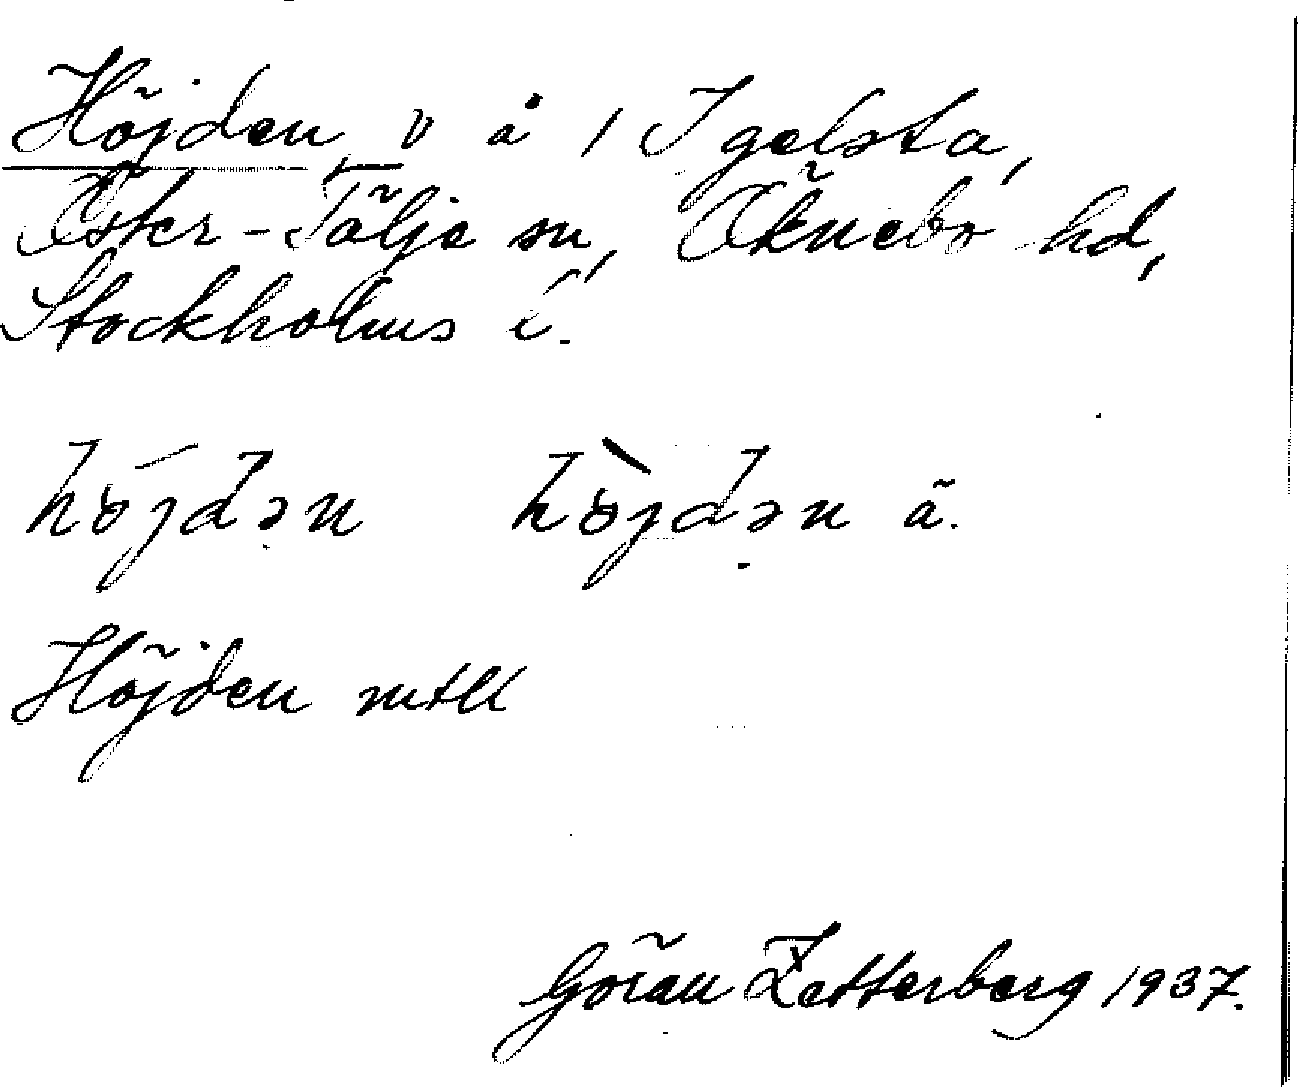 Höjden, v å 1 Igelsta,
Öster-Tälje sn, Öknebo hd,
Stockholms l.
höjdən höjdən ä.
Höjden mtll
Göran Zetterberg 1937.